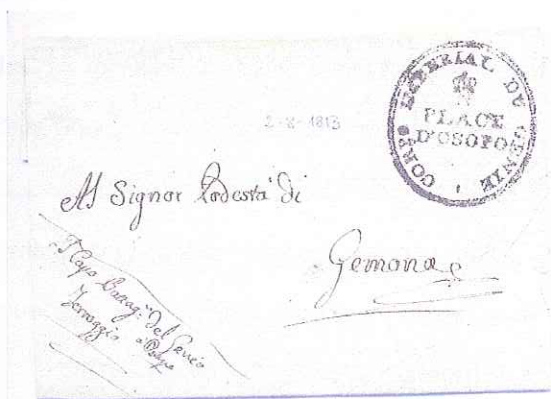 2-8-1813
CORPS IMPERIAL DU GENIE
PLACE
D'OSOPO
Al Signor Podestà di
Gemona
Capo Battag. del Genio